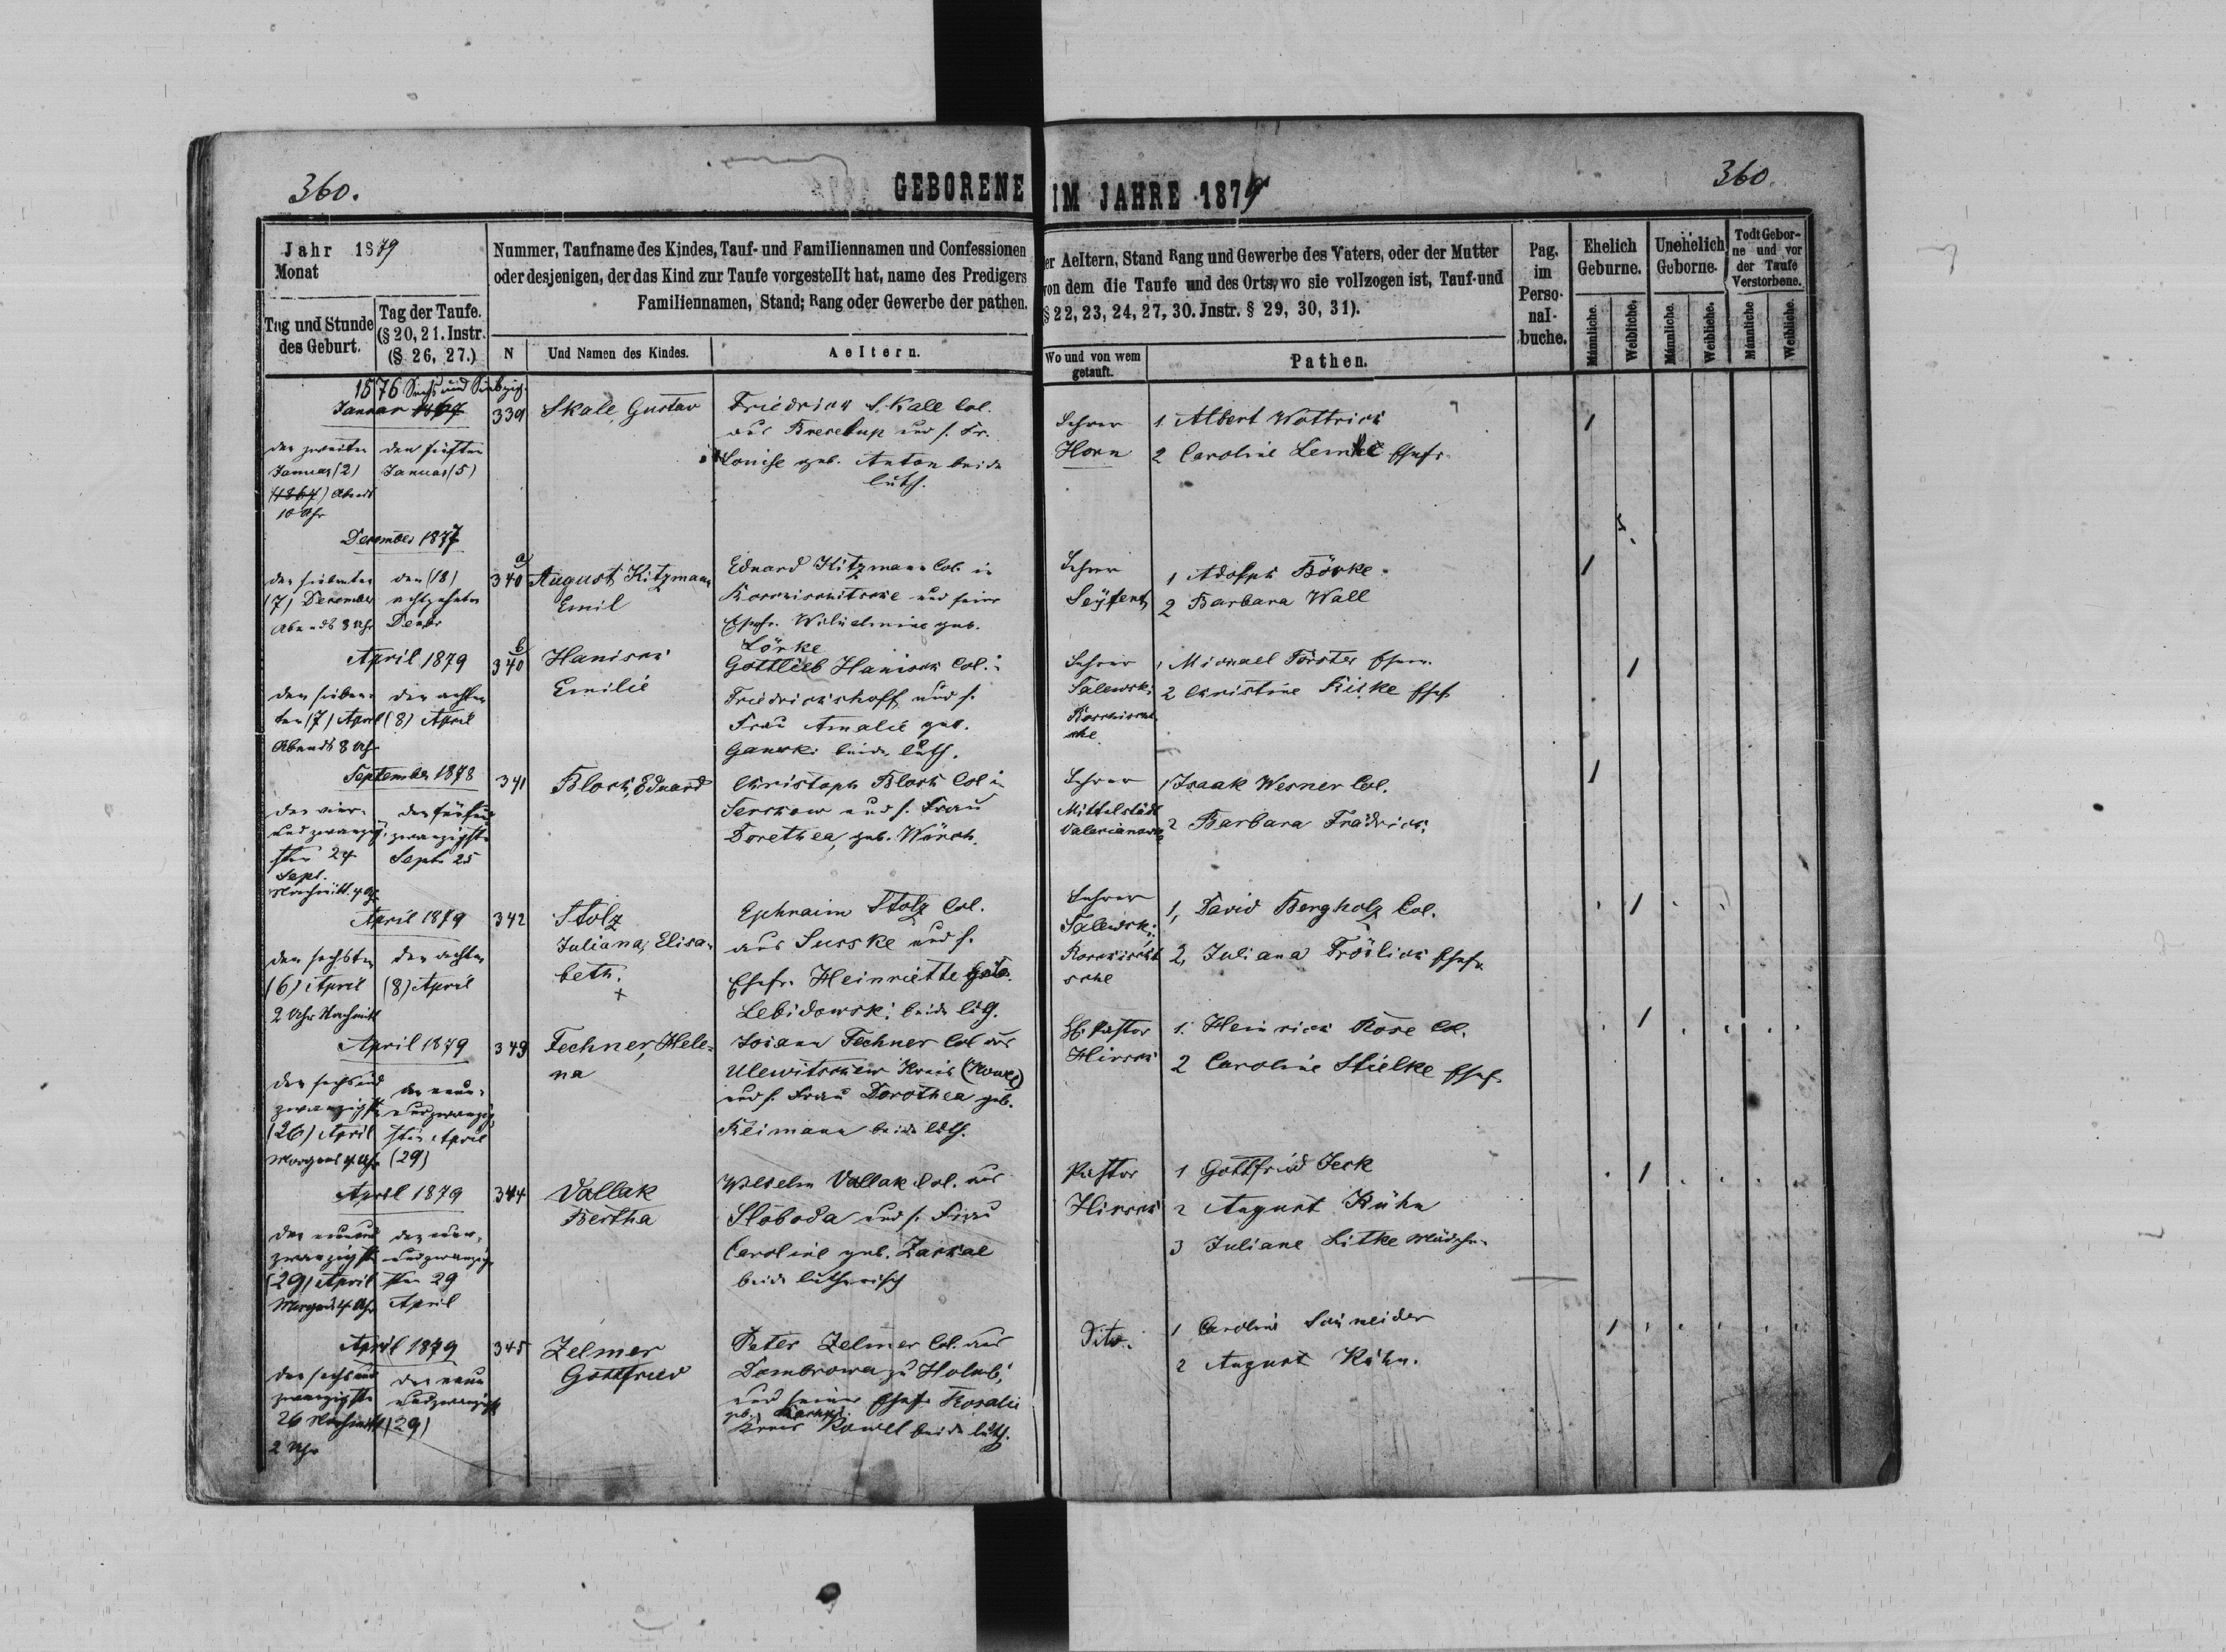 360.
GEBORENE IM JAHRE 1879
360.
Jahr 1879
Monat
Tag und Stunde des Geburt.
Tag der Taufe.
(§ 20, 21. Instr.
(§ 26, 27.)
Nummer, Taufname des Kindes, Tauf- und Familiennamen und Confessionen
oder desjenigen, der das Kind zur Taufe vorgestellt hat, name des Predigers
Familiennamen, Stand; Rang oder Gewerbe der pathen.
N
Und Namen des Kindes.
Aeltern.
er Aeltern, Stand Rang und Gewerbe des Vaters, oder der Mutter
von dem die Taufe und des Orts, wo sie vollzogen ist, Tauf-und
§ 22, 23, 24, 27, 30. Jnstr. § 29, 30, 31).
Wo und von wem
getauft.
Pathen.
Pag.
im
Perso-
nal-
buche.
Ehelich
Geburne.
Unehelich
Geborne.
Todt Gebor-
ne und vor
der Taufe
Verstorbene.
Männliche.
Weibliche.
Männliche.
Weibliche.
Männliche
Weibliche.
1876 Sechs und Siebzig.
Januar
den zweiten
Januar (2)
Abends
10 Uhr
den fünften
Januar (5)
339
Skale, Gustav
Friedrich Skale Col.
aus und s. Fr.
Louise geb. Anton beide
luth.
Lehrer
Horn
1 Albert Wottrich
2 Caroline Lemke Ehefr.
1
December 1877
den siebenten
(7) December
Abends 8 Uhr
den (18)
achtzehnten
Decbr
340 a
August Kitzmann
Emil
Eduard Kitzmann Col. in
und seiner
Ehefr. Wilhelmine geb.
Lörke
Lehrer
Seyfert
1 Adolph Börke
2 Barbara Wall
1
April 1879
den sieben-
ten (7) April
Abends 8 Uhr
den achten
(8) April
340 b
Hanisch
Emilie
Gottlieb Hanisch Col. in
Friedrichshoff und s.
Frau Amalie geb.
Ganski beide luth.
Lehrer
Salewski
1 Michael Förster Ehem.
2 Christine Ehefr.
1
September 1878
den vier-
und zwanzig-
sten 24
Sept.
Nachmitt. 4 Uhr
den fünfund
zwanzigsten
Sept. 25
341
Block, Eduard
Christoph Block Col in
Serchow und s. Frau
Dorethea, geb. Wersch.
Lehrer
Mittelstädt
1 Isaak Werner Col.
2 Barbara Frädrich
1
April 1879
den sechsten
(6) April
2 Uhr Nachmitt
den achten
(8) April
342
Stolz
Juliana, Elisa-
beth.
+
Ephraim Stolz Col.
aus Susske und s.
Ehefr. Heinriette geb.
Lebidowski beide
Lehrer
Salewski
1, David Bergholz Col.
2, Juliana Frölich Ehefr.
1
April 1879
den sechsund
zwanzigsten
(26) April
Morgens 4 Uhr
den neun-
undzwanzig
sten April
(29)
343
Fechner, Hele-
na
Johann Fechner Col aus
Ulewitschew Kreis (Kowel)
und s. Frau Dorothea geb.
Reimann beide luth.
Pastor
Hirsch
1. Heinrich Rose Col.
2 Caroline Stielke Ehefr.
1
April 1879
den neunund
zwanzigsten
(29) April
Morgens 4 Uhr
den neun-
undzwanzig-
sten 29
April
344
Vallak
Bertha
Wilhelm Vallak Col. aus
Sloboda und s. Frau
Caroline geb. Zackal
beide lutherisch
Pastor
Hirsch
1 Gottfried Jeck
2 August Kühn
3 Juliane Litke Mädchen
1
April 1879
den sechsund
zwanzigsten
26 Nachmitt
2 Uhr
den neun
undzwanzigst
(29)
345
Zelmer
Gottfried
Peter Zelmer Col. aus
Dombrowa zu Holub;
und seiner Ehefr. Rosalie
geb.
Kreis Kowel beide luth.
Dito.
1 Caroline Schneider
2 August Kühn.
1